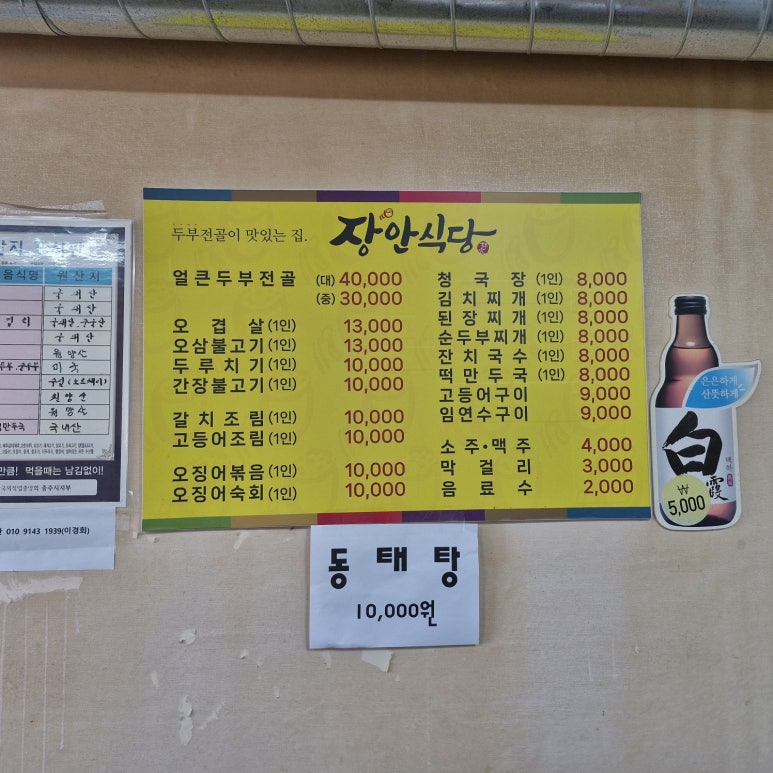 두부전골이 맛있는 집.
장안식당
얼큰두부전골 (대) 40,000
(중) 30,000
오겹살 (1인) 13,000
오삼불고기 (1인) 13,000
두루치기 (1인) 10,000
간장불고기 (1인) 10,000
갈치조림 (1인) 10,000
고등어조림 (1인) 10,000
오징어볶음 (1인) 10,000
오징어숙회 (1인) 10,000
청국장 (1인) 8,000
김치찌개 (1인) 8,000
된장찌개 (1인) 8,000
순두부찌개 (1인) 8,000
잔치국수 (1인) 8,000
떡만두국 (1인) 8,000
고등어구이 9,000
임연수구이 9,000
소주·맥주 4,000
막걸리 3,000
음료수 2,000
동태탕
10,000원
은은하게
산뜻하게
白霞
백하
₩
5,000
음식명 원산지
국내산
국내산
국내산
원양산
미국
원양산
원양산
만두국 국내산
만큼! 먹을때는 남김없이!
충주시지부
010 9143 1939(이경희)